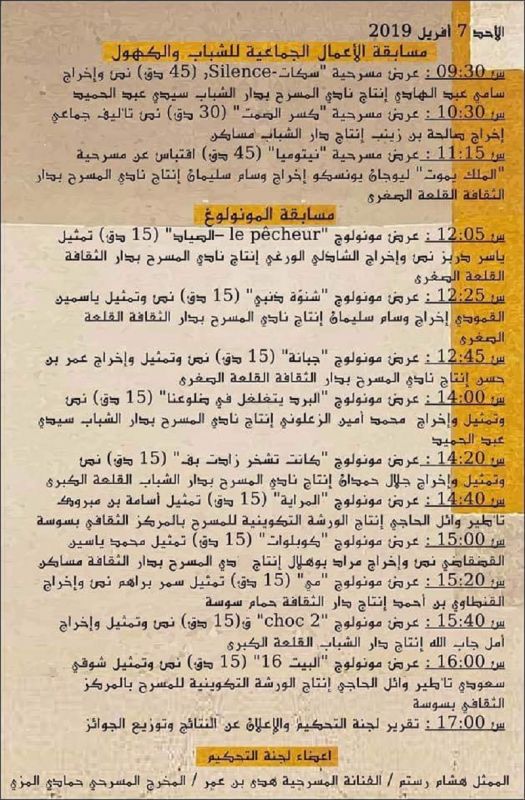 الأحد 7 أفريل 2019
مسابقة الأعمال الجماعية للشباب والكهول
س 09:30 : عرض مسرحية "سكات-Silence" (45 دق) نص وإخراج
سامي عبد الهادي إنتاج نادي المسرح بدار الشباب سيدي عبد الحميد
س 10:30 : عرض مسرحية "كسر الصمت" (30 دق) نص تأليف جماعي
إخراج صالحة بن زينب إنتاج دار الشباب مساكن
س 11:15 : عرض مسرحية "نيتوميا" (45 دق) اقتباس عن مسرحية
"الملك يموت" ليوجان يونسكو إخراج وسام سليمان إنتاج نادي المسرح بدار
الثقافة القلعة الصغرى
مسابقة المونولوغ
س 12:05 : عرض مونولوج "le pêcheur –الصياد" (15 دق) تمثيل
ياسر دريز نص وإخراج الشاذلي الورغي إنتاج نادي المسرح بدار الثقافة
القلعة الصغرى
س 12:25 : عرض مونولوج "شنوّة ذنبي" (15 دق) نص وتمثيل ياسمين
القمودي إخراج وسام سليمان إنتاج نادي المسرح بدار الثقافة القلعة
الصغرى
س 12:45 : عرض مونولوج "جبانة" (15 دق) نص وتمثيل وإخراج عمر بن
حسن إنتاج نادي المسرح بدار الثقافة القلعة الصغرى
س 14:00 : عرض مونولوج "البرد يتغلغل في ضلوعنا" (15 دق) نص
وتمثيل وإخراج محمد أمين الزعلوني إنتاج نادي المسرح بدار الشباب سيدي
عبد الحميد
س 14:20 : عرض مونولوج "كانت تشخر زادت بف" (15 دق) نص
وتمثيل وإخراج جلال حمدان إنتاج نادي المسرح بدار الشباب القلعة الكبرى
س 14:40 : عرض مونولوج "المراية" (15 دق) تمثيل أسامة بن مبروك
تأطير وائل الحاجي إنتاج الورشة التكوينية للمسرح بالمركز الثقافي بسوسة
س 15:00 : عرض مونولوج "كوبلوات" (15 دق) تمثيل محمد ياسين
القصقاصي نص وإخراج مراد بوهلال إنتاج دي المسرح بدار الثقافة مساكن
س 15:20 : عرض مونولوج "مي" (15 دق) تمثيل سمر براهم نص وإخراج
القنطاوي بن أحمد إنتاج دار الثقافة حمام سوسة
س 15:40 : عرض مونولوج "choc 2" ق(15 دق) نص وتمثيل وإخراج
أمل جاب الله إنتاج دار الشباب القلعة الكبرى
س 16:00 : عرض مونولوج "البيت 16" (15 دق) نص وتمثيل شوقي
سعودي تأطير وائل الحاجي إنتاج الورشة التكوينية للمسرح بالمركز
الثقافي بسوسة
س 17:00 : تقرير لجنة التحكيم والإعلان عن النتائج وتوزيع الجوائز
اعضاء لجنة التحكيم
الممثل هشام رستم / الفنانة المسرحية هدى بن عمر / المخرج المسرحي حمادي المزي